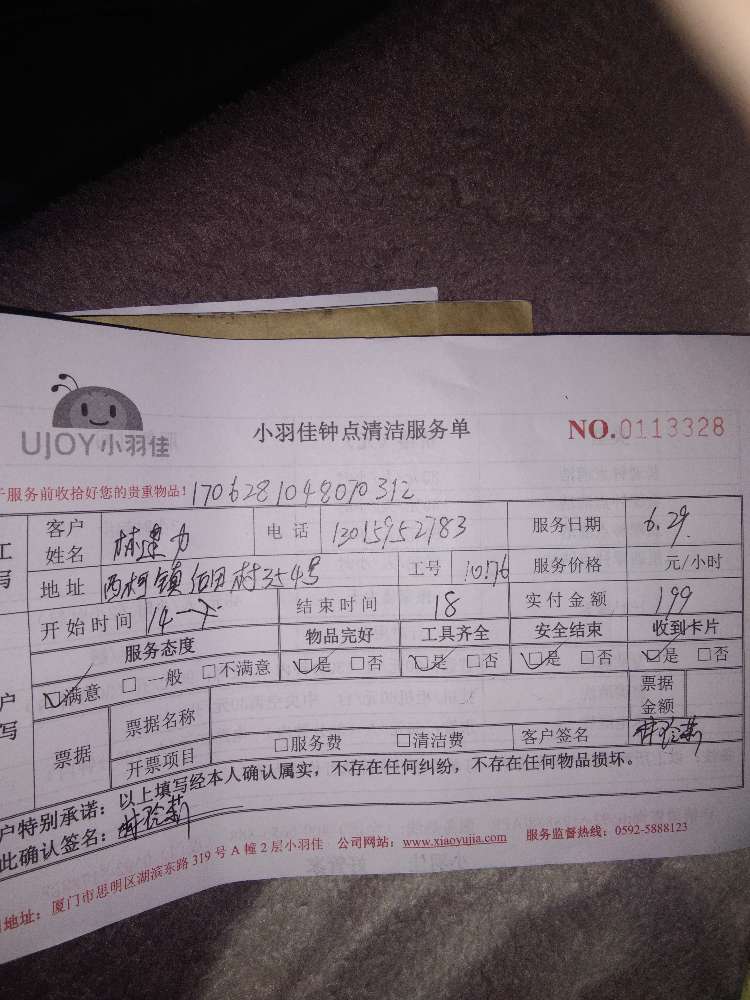 UJOY小羽佳
小羽佳钟点清洁服务单
NO.0113328
于服务前收拾好您的贵重物品! 1706281048070312
工 客户姓名 林建力 电话 13015952783 服务日期 6.29
写 地址 西柯镇 村354号 工号 10176 服务价格 元/小时
开始时间 14 结束时间 18 实付金额 199
服务态度 物品完好 工具齐全 安全结束 收到卡片
☑满意 □一般 □不满意 ☑是 □否 ☑是 □否 ☑是 □否 ☑是 □否
户 写 票据 票据名称 票据金额
开票项目 □服务费 □清洁费 客户签名 林
户特别承诺:以上填写经本人确认属实,不存在任何纠纷,不存在任何物品损坏。
此确认签名: 林
地址:厦门市思明区湖滨东路319号A幢2层小羽佳 公司网站:www.xiaoyujia.com 服务监督热线:0592-5888123